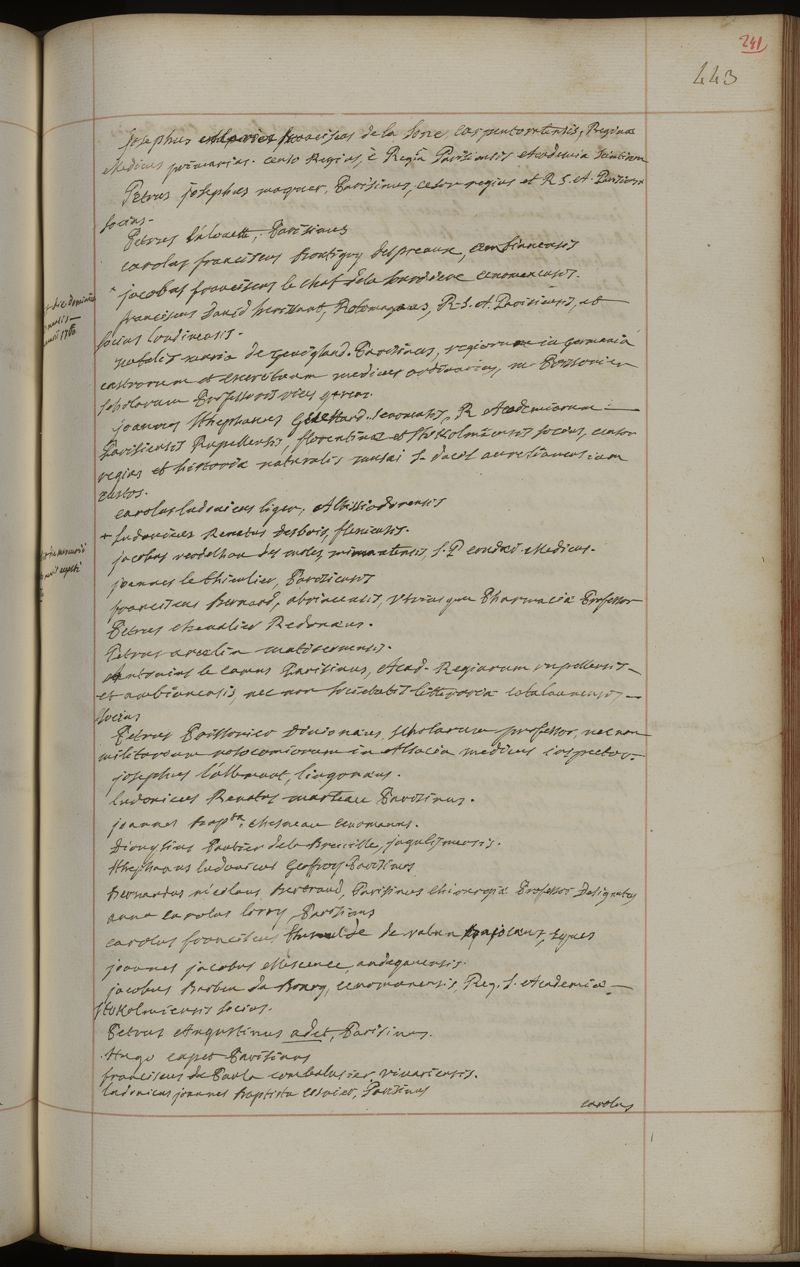 241
443
Josephus Maria franciscus de la Sone Carpentoratensis, Reginae
Medicus primarius. censor Regius, è Regia Parisiensis Academia scientiarum
Petrus josephus maquer, Parisinus, censor regius et R. S. A. Parisiens
socius.
Petrus Lalouette, Parisinus
carolus franciscus Boutigny despreaux,
* jacobus franciscus le chat dela Sourdiere cenomanensis.
franciscus David herissant, Rotomagaeus, R. S. A. Parisiensis, et
socius Londinensis.
natalis maria de gevigland. Parisinus, regiorum in germania
castrorum et exercituum medicus ordinarius, m Poissonier
scholarum Professoris vices gerens.
joannes Stephanus Guettard. R. Academiarum
Parisiensis Rupellensis, florentinae et Stokolmiensis socius, censor
regius et historiae naturalis musaei S. ducis aurelianensium
custos.
carolus ludovicus liger, Altissiodorensis
+ Ludovicus Renatus Desbois, flexiensis.
jacobus verdelhan des moles, mimatensis, S. P. condaei Medicus.
joannes le thieulier, Parisiensis
franciscus Bernard, abrincensis, utriusque Pharmaciae Professor
Petrus chevalier Redonaeus.
Petrus arcelin matisconensis.
Antonius le camus Parisinus, Acad. Regiarum rupellensis
et ambianensis, nec non societatis litterariae catalaunensis
socius
Petrus Poissonier Divionaeus, scholarum professor, nec non
militarium nosocomiorum in Alsacia medicus inspector.
josephus lallemant, lingonaeus.
ludovicus Renatus marteau Parisinus.
joannes bapta. chesneau cenomanus.
Dionysius Pautier dela Breuille, jnqulismensis.
Stephanus ludovicus Geoffroy Parisinus
Bernardus nicolaus Bertrand, Parisinus chirurgiae Professor Designatus
anna carolus lorry, Parisinus
carolus franciscus de valun eques
joannes jacobus Messence, andegavensis.
jacobus Barbeu du Bourg, cenomanensis, Reg. S. Academiae
Stokolmiensis socius.
Petrus Augustinus adet, Parisinus.
Hugo capet Parisinus
franciscus de Paula combalusier vivariensis.
ludovicus joannes baptista cosnier, Parisinus
carolus